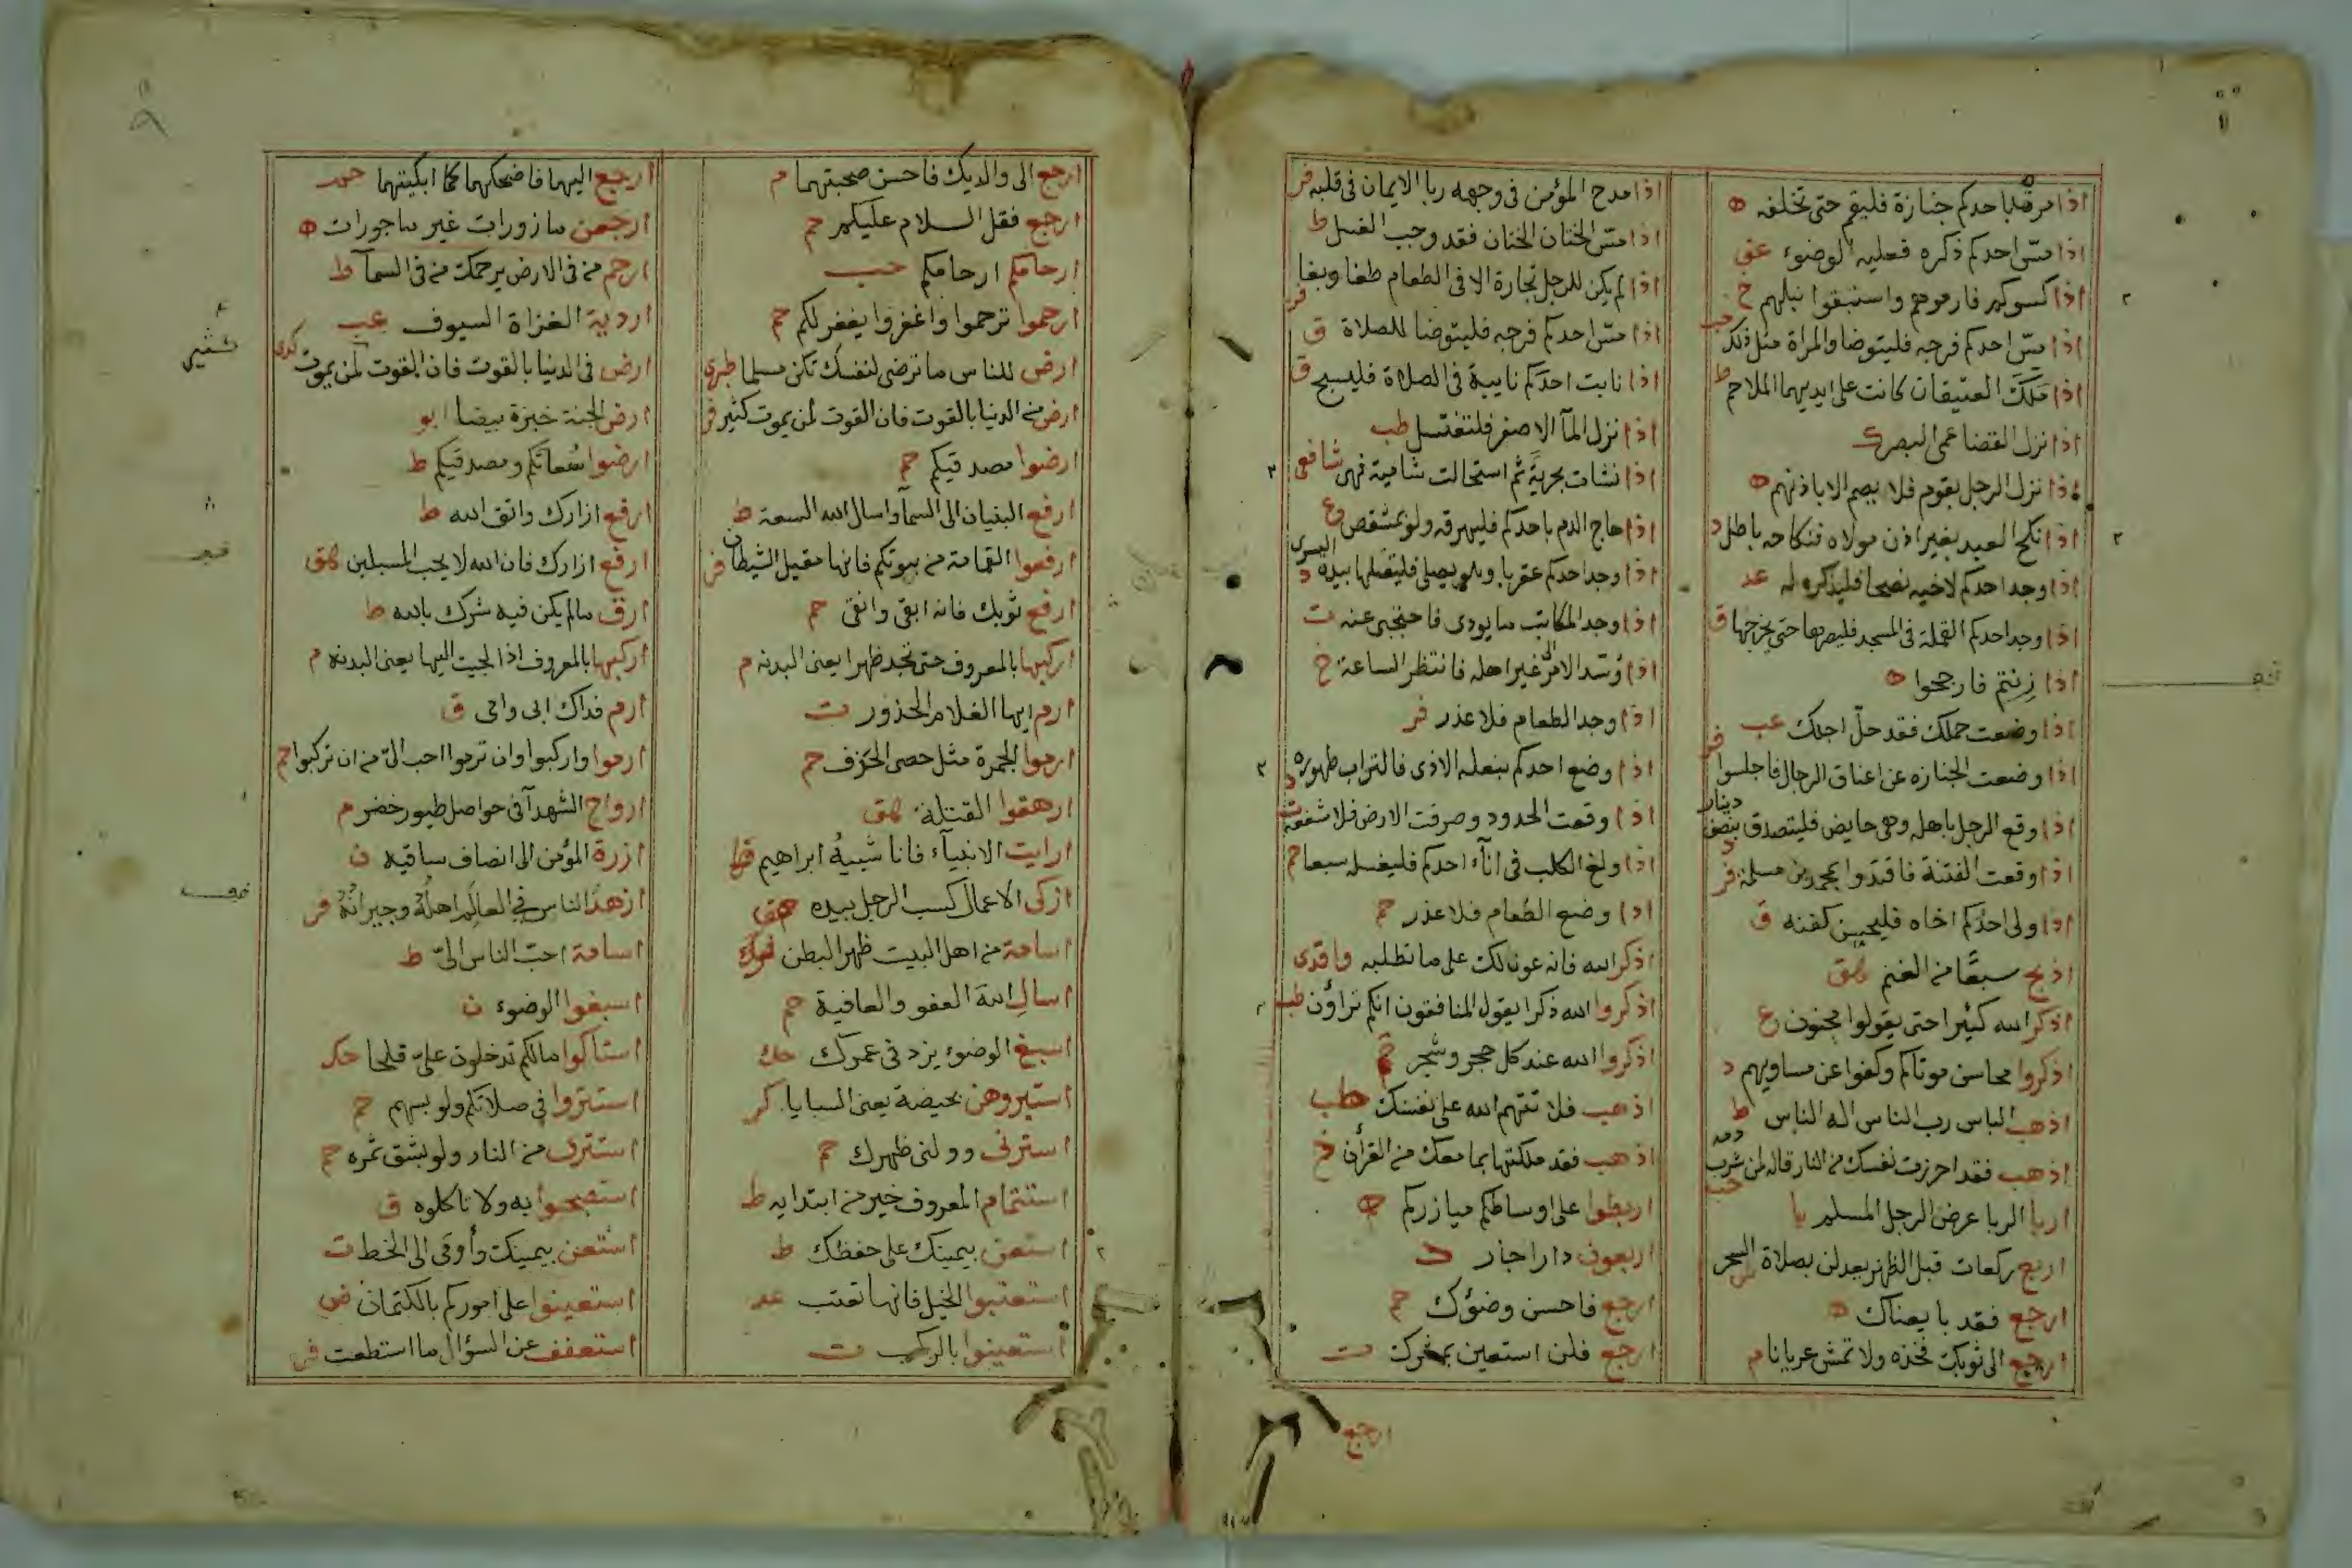 اذا مر باحدكم جنازة فليقم حتى تخلفه ه
اذا مسّ احدكم ذكره فعليه الوضوء عق
اذا كسوكم فارموهم واستبقوا نبلهم خ
اذا مسّ احدكم فرجه فليتوضا والمراة مثل ذلك حب
اذا ملك العتيقان كانت على ايديهما الملاحم ط
اذا نزل القضا عمى البصر ك
اذا نزل الرجل بقوم فلا يصم الا باذنهم ه
اذا نكح العبد بغير اذن مولاه فنكاحه باطل د
اذا وجد احدكم لاخيه نصحا فليذكره له عد
اذا وجد احدكم القملة في المسجد فليصرها حتى يخرجها ق
اذا زِنتم فارجحوا ه
اذا وضعت حملك فقد حلّ اجلك عب
اذا وضعت الجنازه عن اعناق الرجال فاجلسوا
اذا وقع الرجل باهله وهى حايض فليتصدق بنصف دينار د
اذا وقعت الفتنة فاقتدوا بمحمد بن مسلمة فر
اذا ولى احدكم اخاه فليحسن كفنه ق
اذبح سبعًا من الغنم هق
اذكر الله كثيرا حتى يقولوا مجنون ع
اذكروا محاسن موتاكم وكفوا عن مساويهم د
اذهب الباس رب الناس اله الناس ط
اذهب فقد احرزت نفسك من النار قاله لمن شرب دمه حب
اربا الربا عرض الرجل المسلم با
اربع ركعات قبل الظهر يعدلن بصلاة السحر
ارجع فقد بايعناك ه
ارجع الى ثوبك فخذه ولا تمش عريانا م
اذا مدح المؤمن في وجهه ربا الايمان في قلبه فر
اذا مسّ الختان الختان فقد وجب الغسل ط
اذا لم يكن للرجل تجارة الا في الطعام طغا وبغا فر
اذا مسّ احدكم فرجه فليتوضا للصلاة ق
اذا نابت احدكم نايبة في الصلاة فليسبح ق
اذا نزل المآ الاصفر فلتغتسل طب
اذا نشات بحريةً ثم استحالت شامية فهى شافعى
اذا هاج الدم باحدكم فليهرقه ولو بمشقص وع
اذا وجد احدكم عقربا وهو يصلى فليقتلها بيده اليسرى د
اذا وجد المكاتب ما يودى فاحتجبى عنه ت
اذا وُسّد الامر الى غير اهله فانتظر الساعة خ
اذا وجد الطعام فلا عذر فر
اذا وضع احدكم بنعله الاذى فالتراب طهوره د
اذا وقعت الحدود وصرفت الارض فلا شفعة ت
اذا ولغ الكلب في انآء احدكم فليغسله سبعا حم
اذا وضع الطعام فلا عذر حم
اذكر الله فانه عونا لك على ما تطلبه واقدى
اذكروا الله ذكرا يقول المنافقون انكم تراؤن طب
اذكروا الله عند كل حجر وشجر حم
اذهب فلا تتهم الله على نفسك
اذهب فقد ملكتها بما معك من القرأن خ
اربطوا على اوساطكم ميازركم ه
اربعون دارا جار د
ارجع فاحسن وضؤك حم
ارجع فلن استعين بمشرك ت
ارجع
ارجع الى والديك فاحسن صحبتهما م
ارجع فقل السلام عليكم حم
ارحامكم ارحامكم حب
ارحموا ترحموا واغفروا يغفر لكم حم
ارض للناس ما ترضى لنفسك تكن مسلما طبرى
ارض من الدنيا بالقوت فان القوت لمن يموت كثير فر
ارضوا مصدقيكم حم
ارفع البنيان الى السمآ واسال الله السعة ط
ارفعوا القمامة من بيوتكم فانها مقيل الشيطان فر
ارفع ثوبك فانه ابقى وانقى حم
اركبها بالمعروف حتى تجد ظهرا يعنى البدنه م
ارم ايها الغلام الحذور ت
ارموا الجمرة مثل حصى الخزف حم
ارهقوا القتلة هق
ارايت الانبيآء فانا شبيهُ ابراهيم قط
ازكى الاعمال كسب الرجل بيده هق
اسامة من اهل البيت ظهر البطن
اسال الله العفو والعافية حم
اسبغ الوضوء يزد في عمرك
استبروهن بحيضة يعنى السبايا كر
استرنى وولنى ظهرك حم
استتمام المعروف خير من ابتدايه ط
استعن بيمينك على حفظك ط
استعتبوا الخيل فانها تعتب عد
استعينوا بالركب ت
ارجع اليهما فاضحكهما كما ابكيتهما حمد
ارجعن مازورات غير ماجورات ه
ارحم من في الارض يرحمك من في السمآ ط
اردية الغزاة السيوف عب
ارض في الدنيا بالقوت فان القوت لمن يموت
ارض الجنة خبزة بيضا ابو
ارضوا سُعاتكم ومصدقيكم ط
ارفع ازارك واتق الله ط
ارفع ازارك فان الله لا يحب المسبلين هق
ارق ما لم يكن فيه شرك بالله ط
اركبها بالمعروف اذا الجيت اليها يعنى البدنه م
ارم فداك ابى وامى ق
ارموا واركبوا وان ترموا احب الىّ من ان تركبوا حم
ارواح الشهدآ في حواصل طيور خضر م
ازرة المؤمن الى انصاف ساقيه ن
ازهد الناس في العالِم اهلُهُ وجيرانُهُ فر
اسامة احبّ الناس الىّ ط
اسبغوا الوضوء ن
استاكوا مالكم تدخلون علىّ قلحا حك
استتروا في صلاتكم ولو بسهم حم
استترى من النار ولو بشق تمره حم
استصبحوا به ولا تاكلوه ق
استعن بيمينك وأوفى الى الخط ت
استعينوا على اموركم بالكتمان ض
استعفف عن السؤال ما استطعت فر